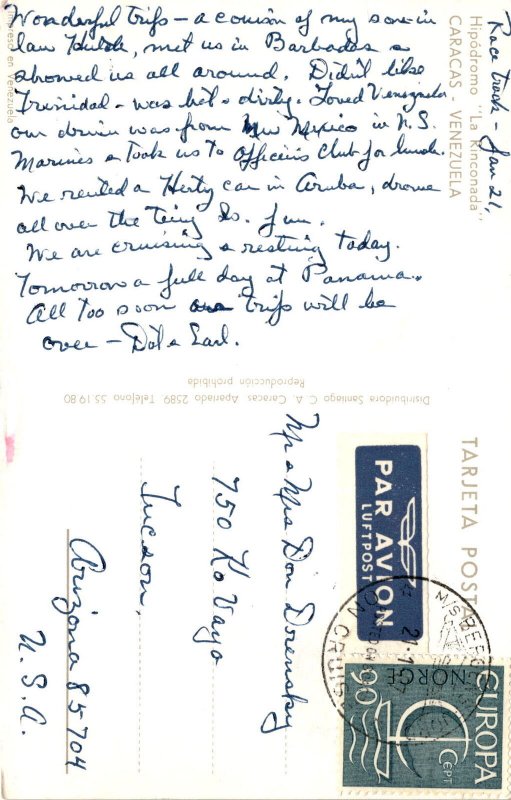 Race track - Jan 21,
Hipódromo "La Rinconada"
CARACAS - VENEZUELA
Wonderful trip - a cousin of my son in
law Hulde, met us in Barbados &
showed us all around. Didn't like
Trinidad - was hot & dirty. Loved Venezuela
our driver was from New Mexico in U.S.
Marines & took us to Officers Club for lunch.
We rented a Hertz car in Aruba, drove
all over the tiny Is. fun.
We are cruising & resting today.
Tomorrow a full day at Panama.
All too soon our trip will be
over - Dot & Earl.
Impreso en Venezuela
Distribuidora Santiago C. A. Caracas Apartado 2589 Teléfono 55.19.80
Reproducción prohibida
TARJETA POST
PAR AVION
LUFTPOST
Mr & Mrs Don Dorensky
750 Ko Vaya
Tucson,
Arizona 85704
U.S.A.
EUROPA
NORGE
CEPT
90
ON CRUISE